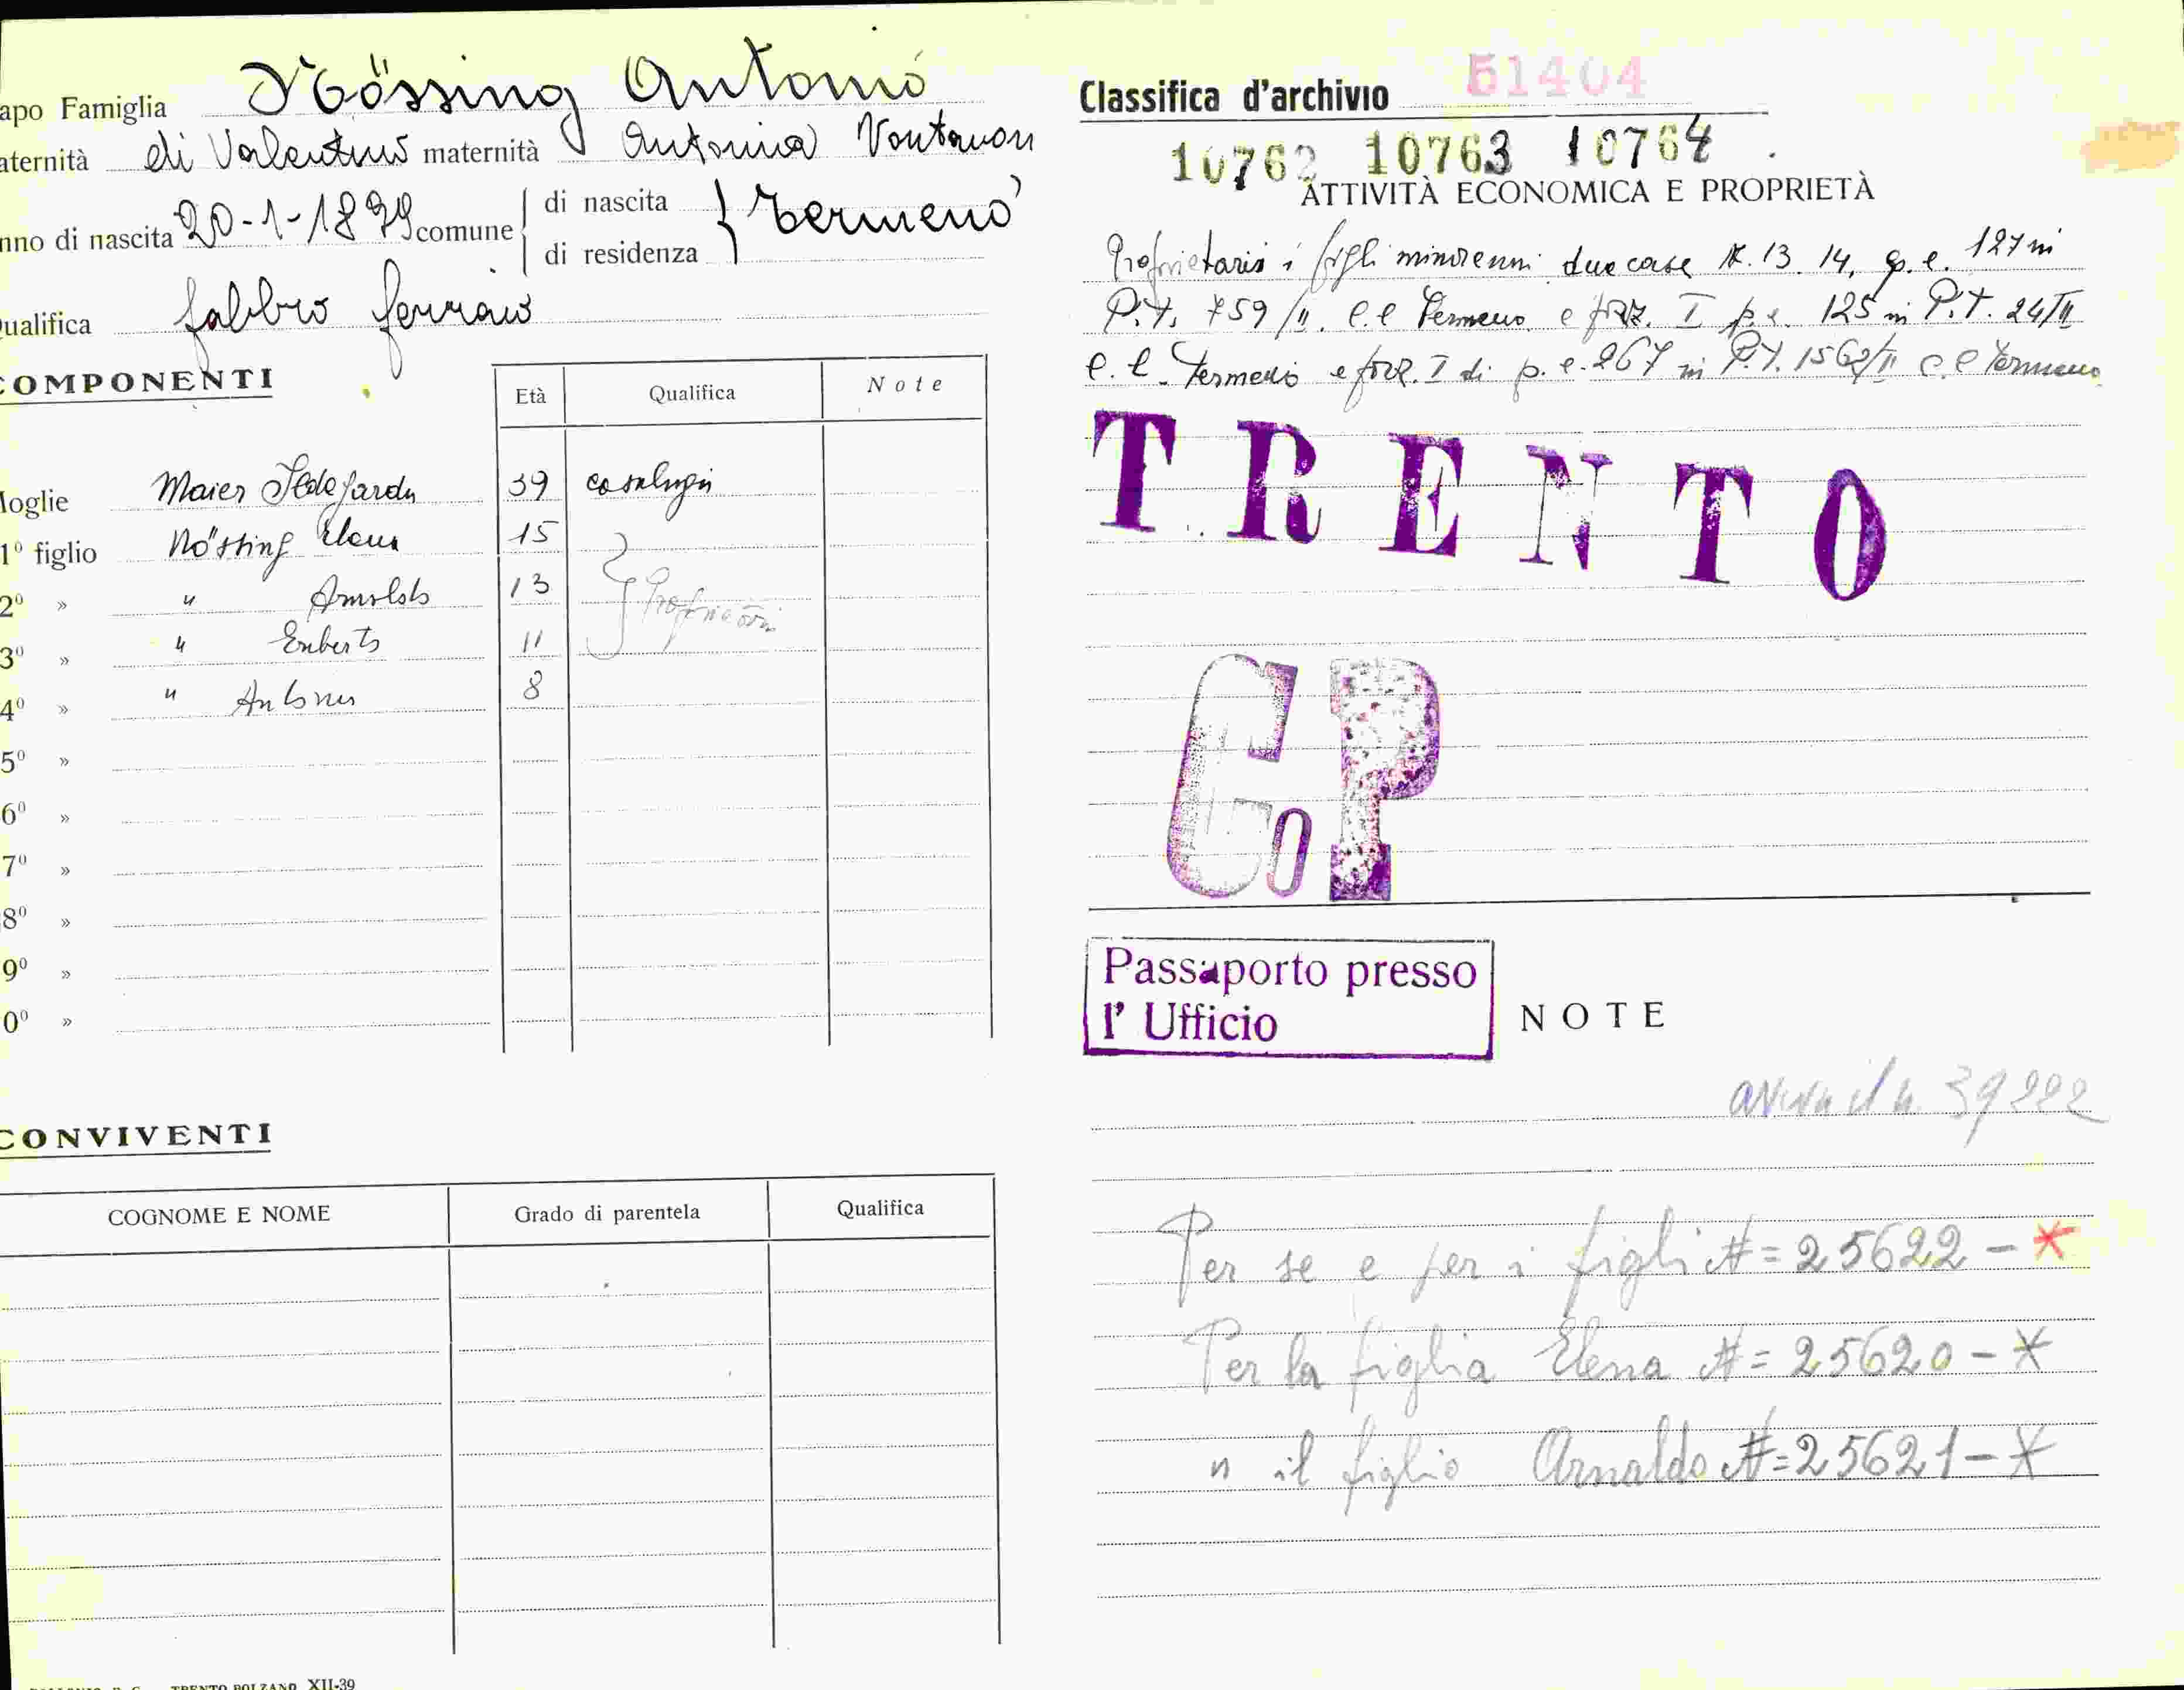 apo Famiglia Nössing Antonio
aternità di Valentino maternità Antonia Vontavon
nno di nascita 20-1-1899 comune di nascita di residenza } Termeno
ualifica fabbro ferraio
COMPONENTI
Età Qualifica Note
Moglie Maier Ildegarda 39 casalinga
1º figlio Nössing Elena 15
2º » " Arnoldo 13 } Proprietari
3º » " Erberto 11
4º » " Antonio 8
5º »
6º »
7º »
8º »
9º »
0º »
CONVIVENTI
COGNOME E NOME Grado di parentela Qualifica
TRENTO BOLZANO XII-39
Classifica d'archivio 51404
10762 10763 10764
ATTIVITÀ ECONOMICA E PROPRIETÀ
Proprietari i figli minorenni due case N. 13. 14, p.e. 127 in
P.T. 759/II. C.C Termeno e fraz. I p.e. 125 in P.T. 24/II
C.C. Termeno e fraz. I di p.e. 267 in P.T. 1562/II C.C Termeno
TRENTO
Co P
Passaporto presso
l' Ufficio
NOTE
aveva il n. 39222
Per se e per i figli N = 25622 - *
Per la figlia Elena N = 25620 - *
" il figlio Arnaldo N = 25621 - *